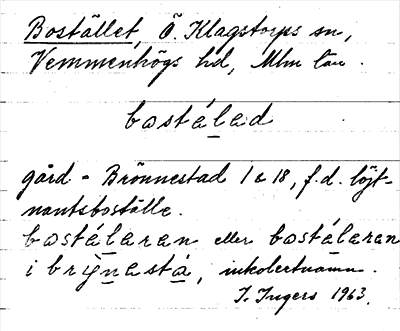 Bostället, Ö. Klagstorps sn,
Vemmenhögs hd, Mlm län.
bostálad
gård = Brönnestad 1 & 18, f.d. löjt-
nantsboställe.
bostálaran eller bostálaran
i brynastá, inkolentnamn.
I. Ingers 1963.